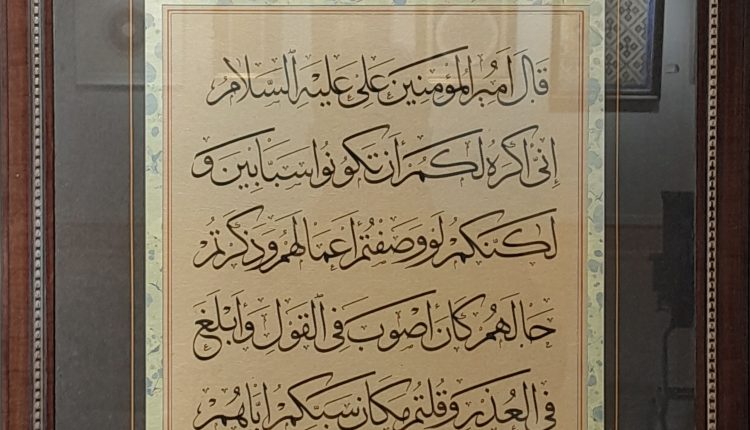 قَالَ أَمِيرُ الْمُؤْمِنِينَ عَلِيٌّ عَلَيْهِ السَّلَامُ
إِنِّي أَكْرَهُ لَكُمْ أَنْ تَكُونُوا سَبَّابِينَ وَ
لَكِنَّكُمْ لَوْ وَصَفْتُمْ أَعْمَالَهُمْ وَذَكَرْتُمْ
حَالَهُمْ كَانَ أَصْوَبَ فِي الْقَوْلِ وَأَبْلَغَ
فِي الْعُذْرِ وَقُلْتُمْ مَكَانَ سَبِّكُمْ إِيَّاهُمْ